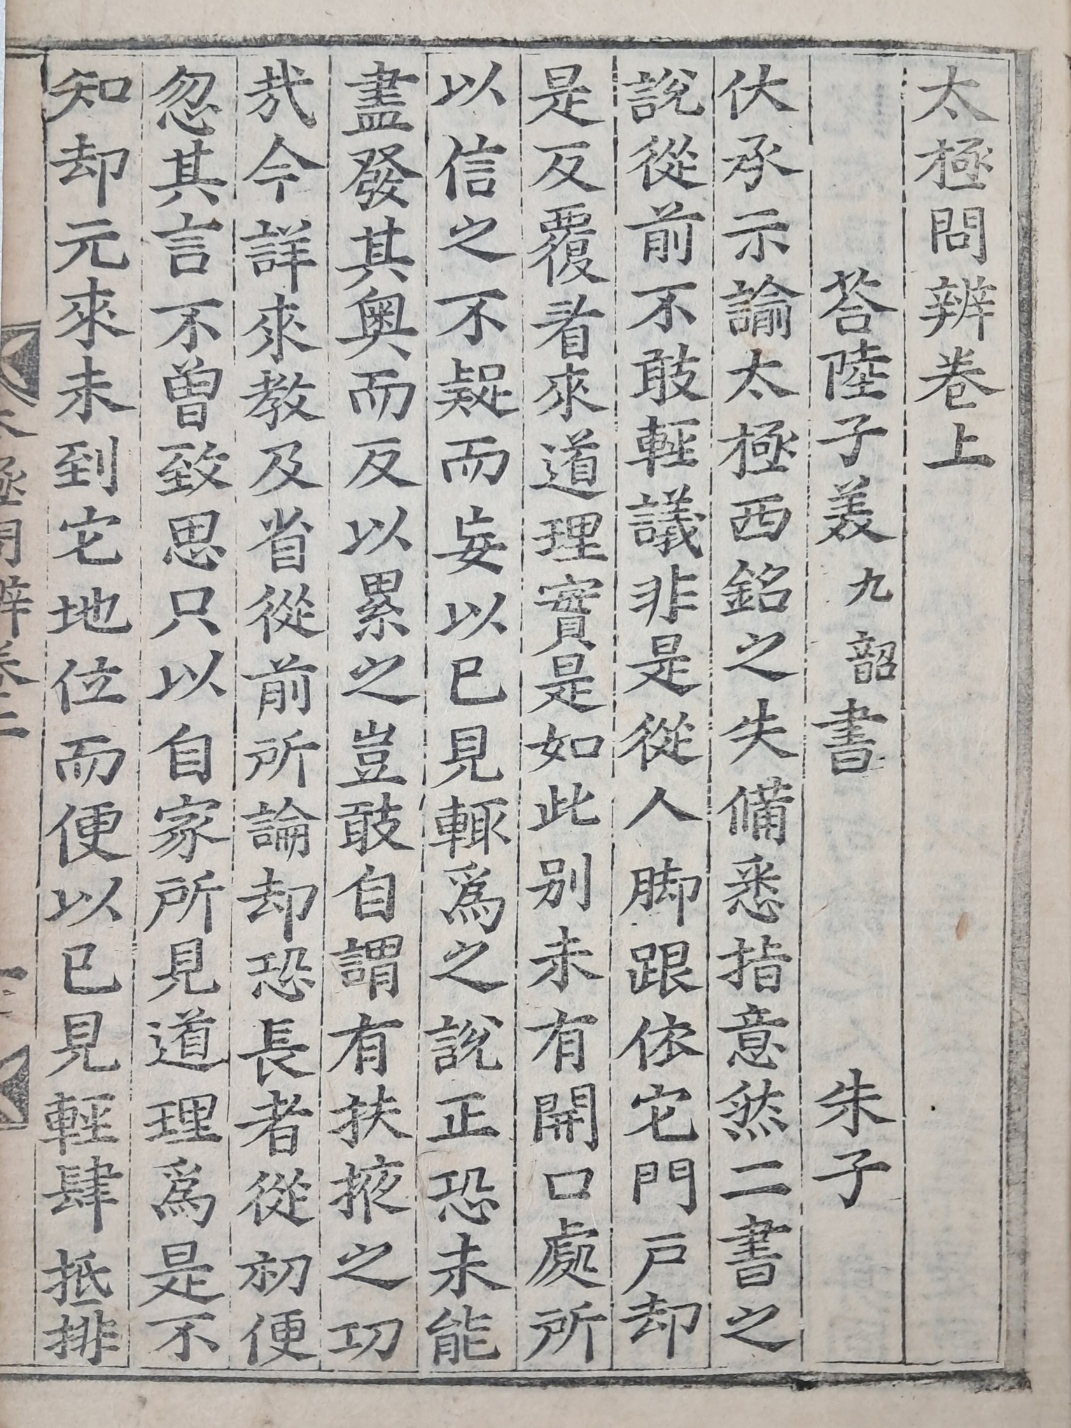 太極問辨卷上
荅陸子美九韶書 朱子
伏承示諭太極西銘之失備悉指意然二書之
說從前不敢輕議非是從人脚跟依它門戶却
是反覆看來道理實是如此別未有開口處所
以信之不疑而妄以已見輒爲之說正恐未能
盡發其奧而反以累之豈敢自謂有扶掖之功
㢤今詳來教及省從前所論却恐長者從初便
忽其言不曾致思只以自家所見道理爲是不
知却元來未到它地位而便以已見輕肆抵排
太極問辨卷上
一